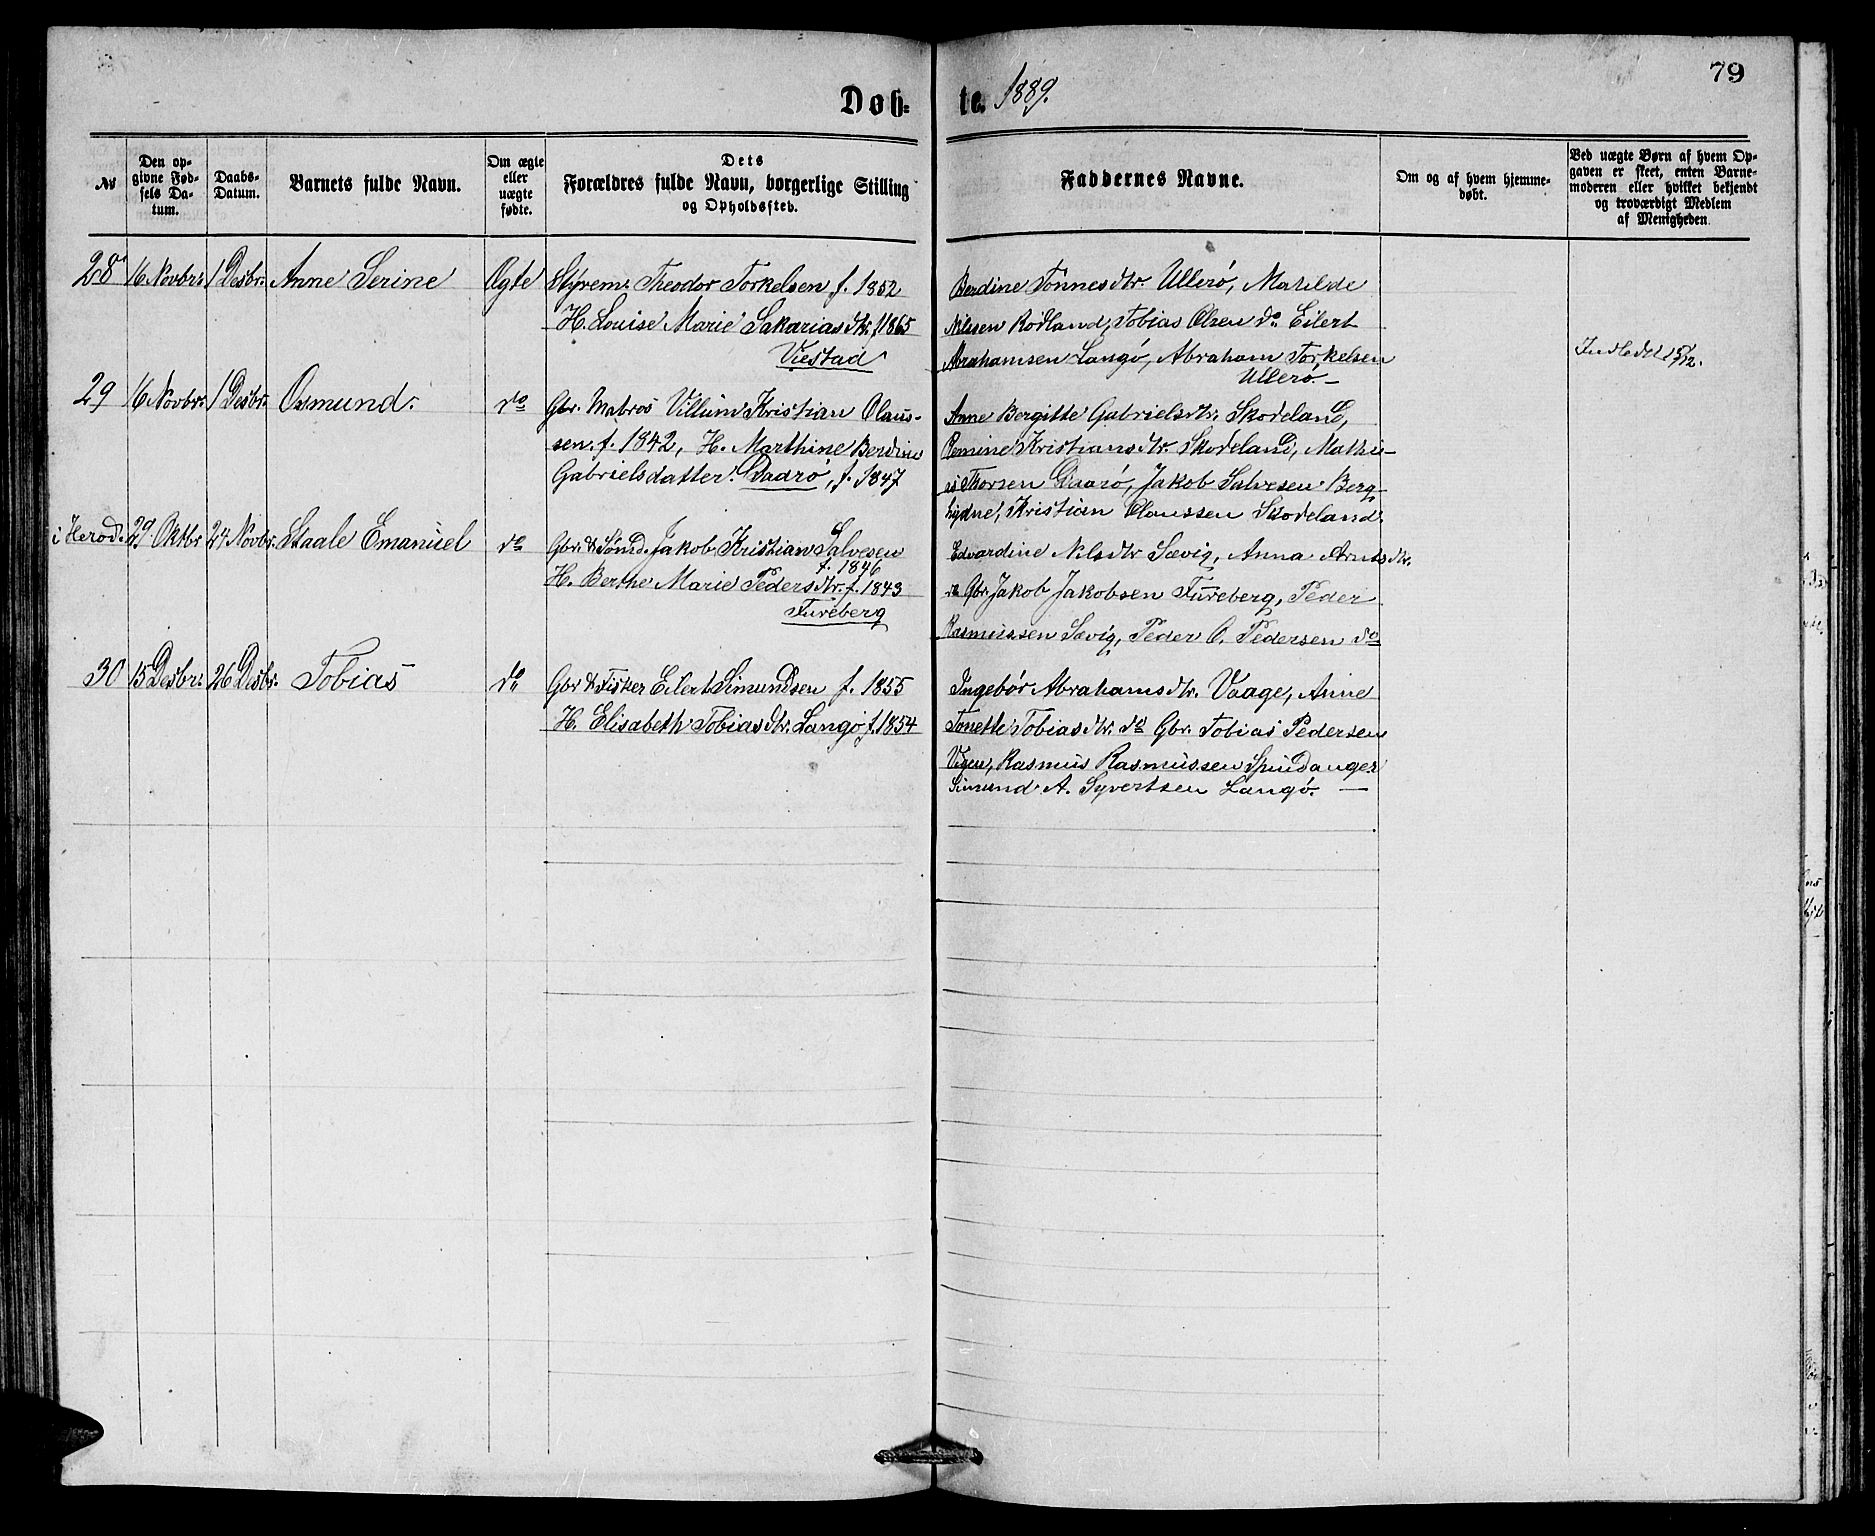 79
Døb- te. 1889.
№
Den opgivne Fødsels Datum.
Daabs-Datum.
Barnets fulde Navn.
Om ægte eller uægte fødte.
Dets Forældres fulde Navn, borgerlige Stilling og Opholdssted.
Faddernes Navne.
Om og af hvem hjemmedøbt.
Ved uægte Børn af hvem Opgaven er skeet, enten Barnemoderen eller hvilket bekjendt og troværdigt Medlem af Menigheden.
28 16 Novbr. 1 Desbr. Anne Serine Ægte
Styrem. Theodor Torkelsen, f. 1852
H. Louise Marie Sakariasdtr. f. 1865
Viestad
Berdine Tönnesdtr. Ullerö, Matilde
Nilssen Rödland, Tobias Olsen do Eilert
Abrahamsen Langö, Abraham Torkelsen
Ullerö.—
29 16 Novbr. 1 Desbr. Osmund. do
Gbr. Matros Villum Kristian Olaus-
sen, f. 1842, H. Marthine Berdine
Gabrielsdatter. Daarö, f. 1847
Anne Bergitte Gabrielsdtr. Skodeland,
Kristiansdtr. Skodeland,
Thorsen Daarö, Jakob Salvesen Berg-
Kristian Olaussen Skodeland.
Indledet 15/12.
i Herod. 29 Oktbr. 24 Novbr. Staale Emanuel do
Gbr. & Sömd. Jakob Kristian Salvesen
f. 1846
H. Berthe Marie Pedersdtr. f. 1843
Fureberg
Edvardine Nilsdtr Sævig, Anna
Gbr. Jakob Jakobsen Fureberg, Peder
Rasmussen Sævig, Peder O. Pedersen do
30 15 Desbr. 26 Desbr. Tobias do
Gbr & Fisker Eilert Simundsen f. 1855
H. Elisabeth Tobiasdtr. Langö f. 1854
Ingebör Abrahamsdtr. Vaage, Anne
Tonette Tobiasdtr. do Gbr. Tobias Pedersen
Rasmus Rasmussen Spindanger
Simund A. Syvertsen Langö. —